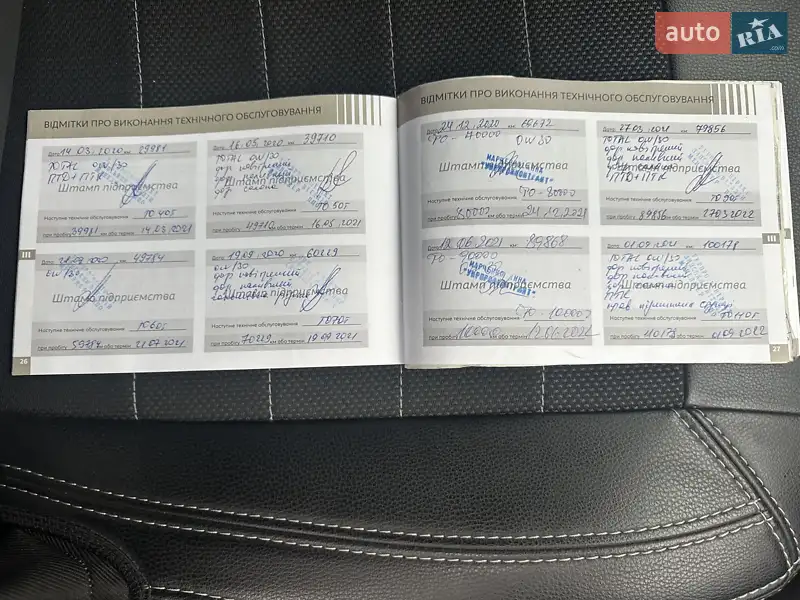 auto RIA.com
ВІДМІТКИ ПРО ВИКОНАННЯ ТЕХНІЧНОГО ОБСЛУГОВУВАННЯ
Дата 14 03.2020 км 29981
TOTAL 0W/30
ПТО+ПТК
Штамп підприємства
Наступне технічне обслуговування ТО 40Т
при пробігу 39981 км або термін 14.03.2021
Дата 16.05.2020 км 39710
TOTAL 0W/30
фор повітряний
фор паливний
фор салона
Штамп підприємства
Наступне технічне обслуговування ТО 50Т
при пробігу 49710 км або термін 16.05.2021
Дата 21.07.2020 км 49784
0W/30
Штамп підприємства
Наступне технічне обслуговування ТО 60Т
при пробігу 59784 км або термін 21.07.2021
Дата 19.09.2020 км 60229
0W/30
фор повітряний
фор паливний
Штамп підприємства
Наступне технічне обслуговування ТО 70Т
при пробігу 70229 км або термін 19.09.2021
III
26
ВІДМІТКИ ПРО ВИКОНАННЯ ТЕХНІЧНОГО ОБСЛУГОВУВАННЯ
Дата 24.12.2020 км 69672
ТО - 70000 0W30
МАРЧЕНКО АННА
"УКРПРОМКОНТРАКТ"
Штамп підприємства
ТО - 80000
Наступне технічне обслуговування
при пробігу 80000 км або термін 24.12.2021
Дата 27.03.2021 км 79856
TOTAL 0W/30
фор повітряний
фор паливний
фор салона
ПТО+ПТК
Штамп підприємства
Наступне технічне обслуговування ТО 90Т
при пробігу 89856 км або термін 27.03.2022
Дата 12.06.2021 км 89868
ТО - 90000
МАРЧЕНКО АННА
Штамп підприємства
ТО - 100000
Наступне технічне обслуговування
при пробігу 100000 км або термін 12.06.2022
Дата 01.09.2021 км 100178
TOTAL 0W/30
фор повітряний
фор паливний
фор салона
ПТК
Штамп підприємства
Наступне технічне обслуговування ТО 110Т
при пробігу 110178 км або термін 01.09.2022
III
27